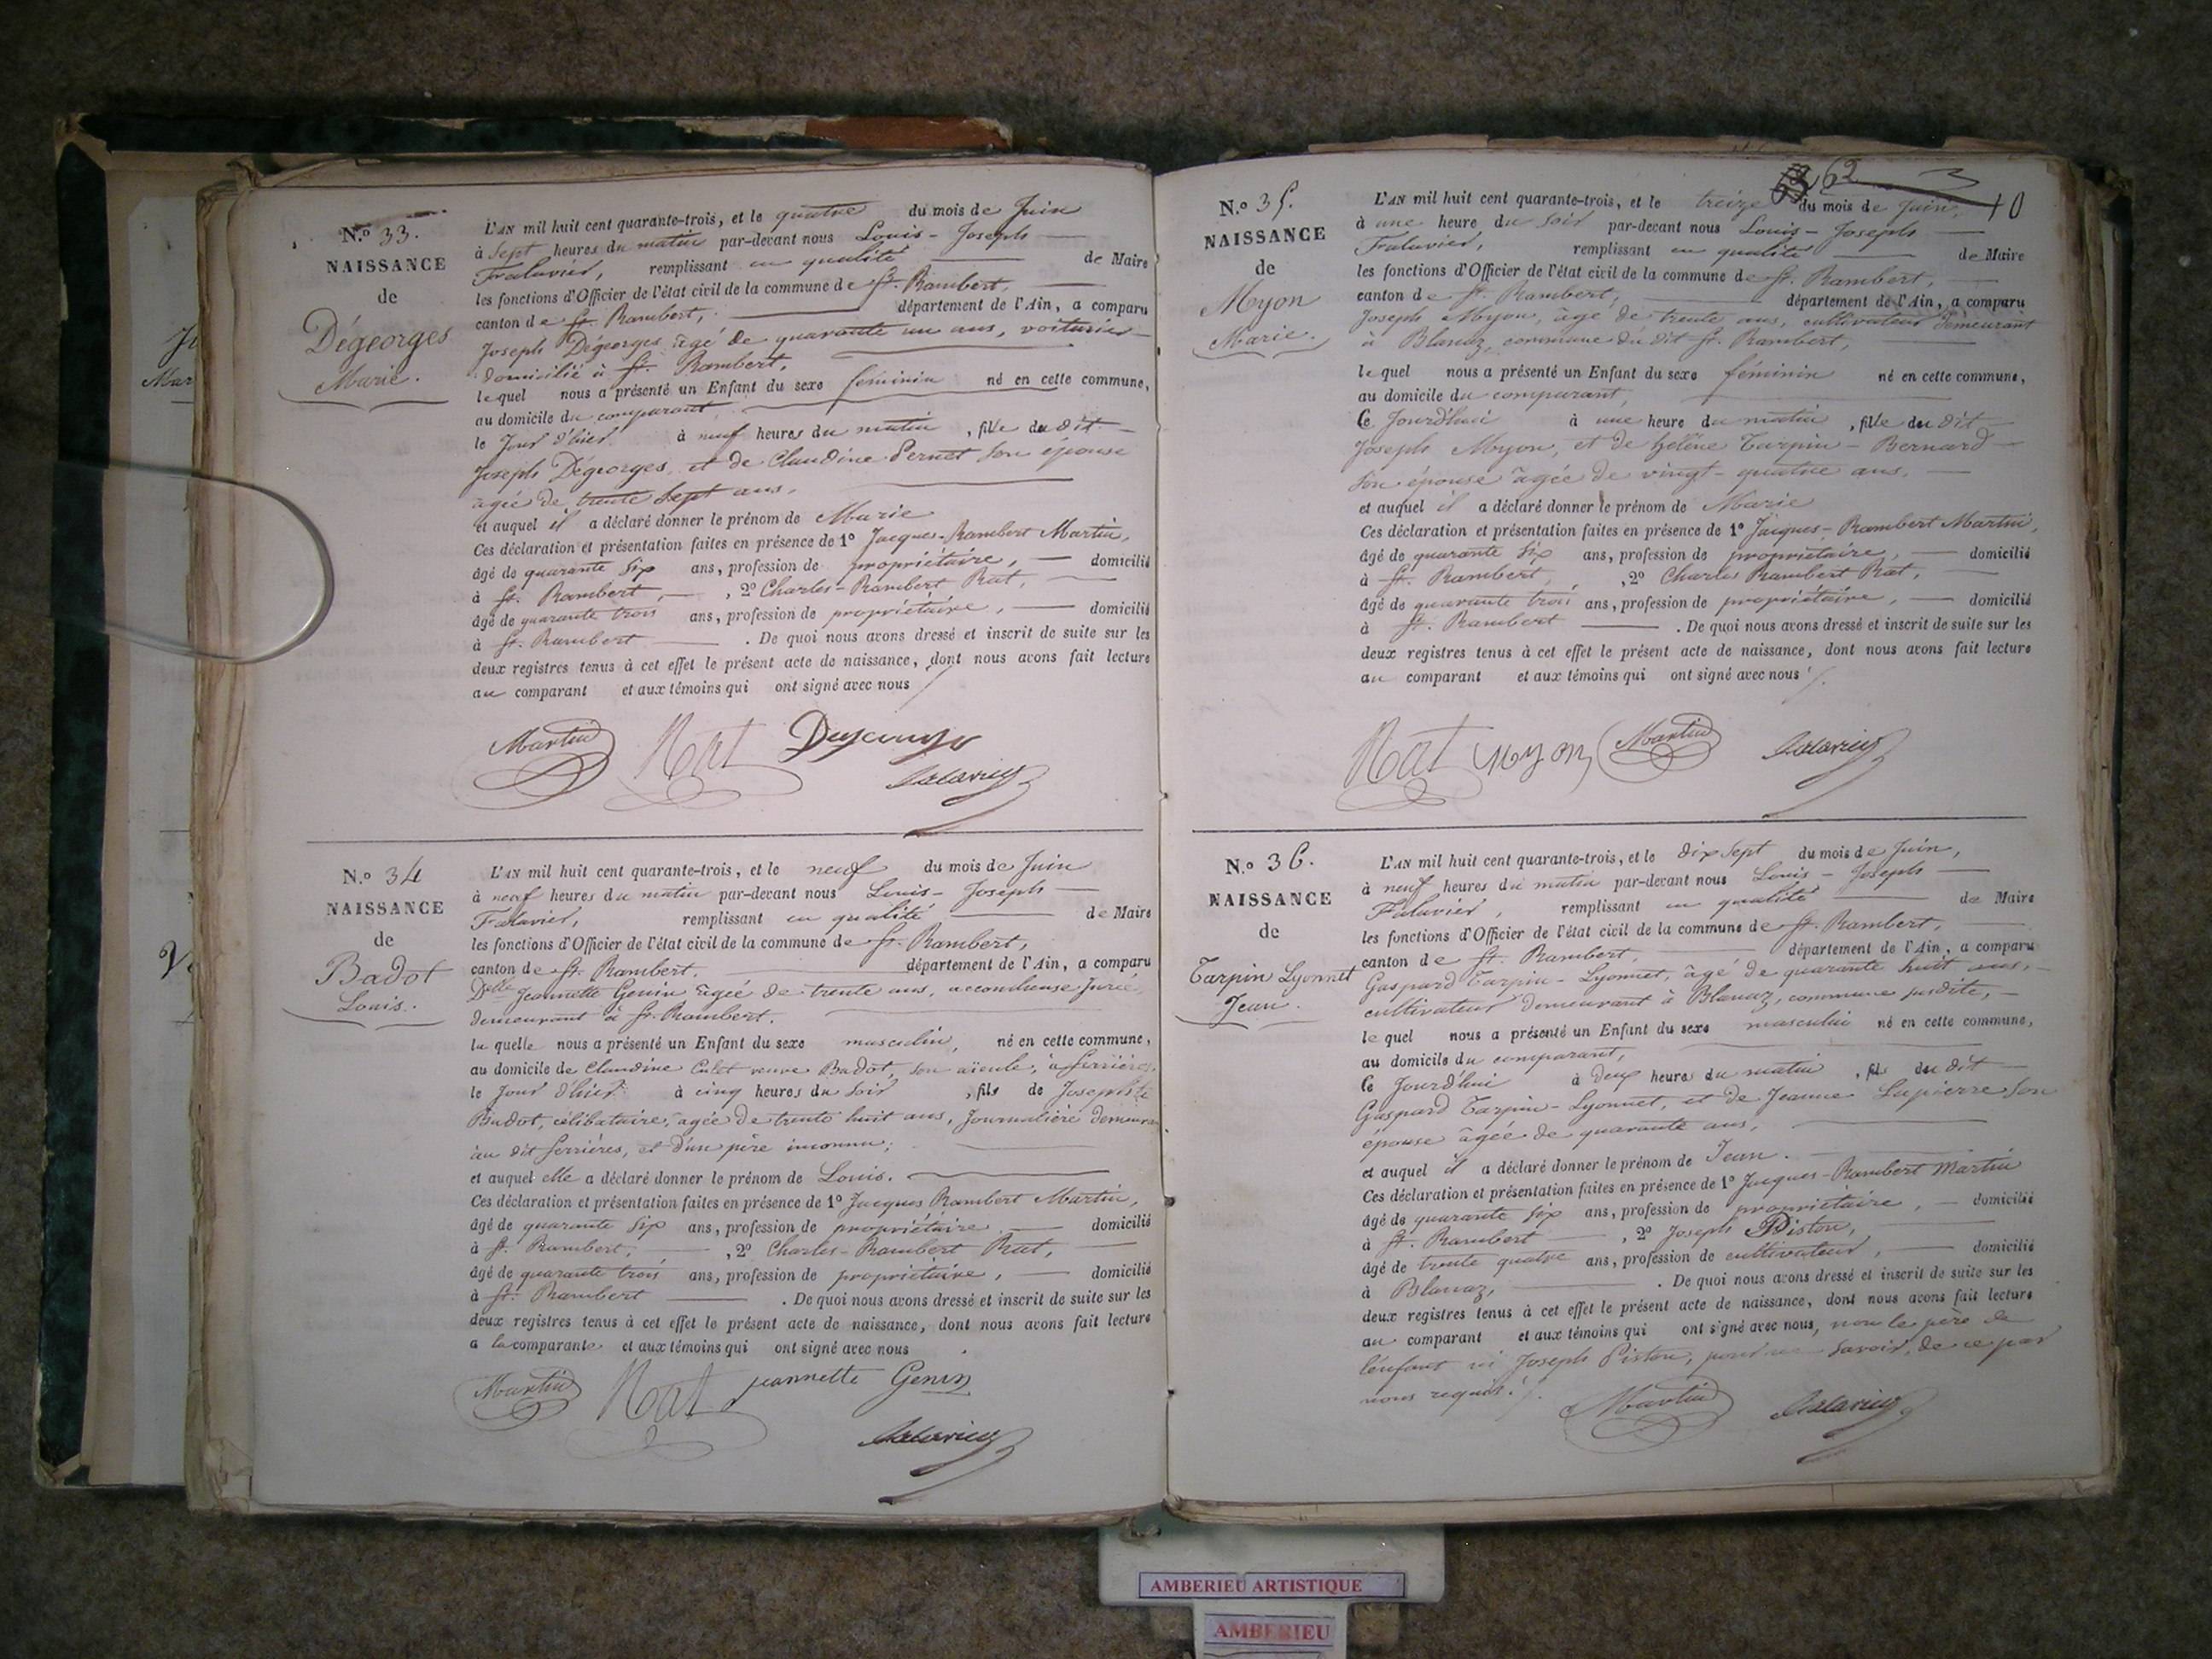 N.o 33.
NAISSANCE
de
Dégeorges
Marie.
L'AN mil huit cent quarante-trois, et le quatre du mois de Juin
à Sept heures du matin par-devant nous Louis-Joseph
Falavier, remplissant en qualité de Maire
les fonctions d'Officier de l'état civil de la commune de St. Rambert,
canton de St. Rambert, département de l'Ain, a comparu
Joseph Dégeorges, âgé de quarante un ans, voiturier
domicilié à St. Rambert,
lequel nous a présenté un Enfant du sexe féminin né en cette commune,
au domicile du comparant,
le Jour d'hier à neuf heures du matin, fille du dit
Joseph Dégeorges, et de Claudine Pernet son épouse
agée de trente Sept ans,
et auquel il a déclaré donner le prénom de Marie
Ces déclaration et présentation faites en présence de 1° Jacques-Rambert Martin,
âgé de quarante six ans, profession de propriétaire, domicilié
à St. Rambert, 2° Charles-Rambert Rat,
âgé de quarante trois ans, profession de propriétaire, domicilié
à St. Rambert. De quoi nous avons dressé et inscrit de suite sur les
deux registres tenus à cet effet le présent acte de naissance, dont nous avons fait lecture
au comparant et aux témoins qui ont signé avec nous
Martin Rat
Falavier
N.o 34
NAISSANCE
de
Badot
Louis.
L'AN mil huit cent quarante-trois, et le neuf du mois de Juin
à neuf heures du matin par-devant nous Louis-Joseph
Falavier, remplissant en qualité de Maire
les fonctions d'Officier de l'état civil de la commune de St. Rambert,
canton de St. Rambert, département de l'Ain, a comparu
Delle Jeannette Genin agée de trente ans, accoucheuse Jurée,
demeurant à St. Rambert.
la quelle nous a présenté un Enfant du sexe masculin, né en cette commune,
au domicile de Claudine veuve Badot, son aïeule, à Serrières,
le Jour d'hier à cinq heures du soir, fils de Josephte
Badot, célibataire, agée de trente huit ans, Journalière
au dit Serrières, et d'un père inconnu;
et auquel elle a déclaré donner le prénom de Louis.
Ces déclaration et présentation faites en présence de 1° Jacques Rambert Martin,
âgé de quarante six ans, profession de propriétaire domicilié
à St. Rambert, 2° Charles-Rambert Rat,
âgé de quarante trois ans, profession de propriétaire, domicilié
à St. Rambert. De quoi nous avons dressé et inscrit de suite sur les
deux registres tenus à cet effet le présent acte de naissance, dont nous avons fait lecture
a la comparante et aux témoins qui ont signé avec nous
Martin Rat jeannette Genin
Falavier
62
10
N.o 35.
NAISSANCE
de
Myon
Marie.
L'AN mil huit cent quarante-trois, et le treize du mois de Juin,
à une heure du soir par-devant nous Louis-Joseph
Falavier, remplissant en qualité de Maire
les fonctions d'Officier de l'état civil de la commune de St. Rambert,
canton de St. Rambert, département de l'Ain, a comparu
Joseph Myon, âgé de trente ans, cultivateur demeurant
à Blanaz, commune du dit St. Rambert,
lequel nous a présenté un Enfant du sexe féminin né en cette commune,
au domicile du comparant,
Ce Jourd'hui à une heure du matin, fille du dit
Joseph Myon, et de hélène Tarpin-Bernard
son épouse âgée de vingt-quatre ans.
et auquel il a déclaré donner le prénom de Marie
Ces déclaration et présentation faites en présence de 1° Jacques-Rambert Martin,
âgé de quarante six ans, profession de propriétaire, domicilié
à St. Rambert, 2° Charles Rambert Rat,
âgé de quarante trois ans, profession de propriétaire, domicilié
à St. Rambert. De quoi nous avons dressé et inscrit de suite sur les
deux registres tenus à cet effet le présent acte de naissance, dont nous avons fait lecture
au comparant et aux témoins qui ont signé avec nous
Rat Myon Martin Falavier
N.o 36.
NAISSANCE
de
Tarpin Lyonnet
Jean.
L'AN mil huit cent quarante-trois, et le dix sept du mois de Juin,
à neuf heures du matin par-devant nous Louis-Joseph
Falavier, remplissant en qualité de Maire
les fonctions d'Officier de l'état civil de la commune de St. Rambert,
canton de St. Rambert, département de l'Ain, a comparu
Gaspard Tarpin-Lyonnet, âgé de quarante huit ans,
cultivateur demeurant à Blanaz, commune susdite,
lequel nous a présenté un Enfant du sexe masculin né en cette commune,
au domicile du comparant,
Ce Jourd'hui à deux heures du matin, fils du dit
Gaspard Tarpin-Lyonnet, et de Jeanne Lapierre son
épouse âgée de quarante ans,
et auquel il a déclaré donner le prénom de Jean.
Ces déclaration et présentation faites en présence de 1° Jacques-Rambert Martin
âgé de quarante six ans, profession de propriétaire, domicilié
à St. Rambert, 2° Joseph Piston,
âgé de trente quatre ans, profession de cultivateur, domicilié
à Blanaz, . De quoi nous avons dressé et inscrit de suite sur les
deux registres tenus à cet effet le présent acte de naissance, dont nous avons fait lecture
au comparant et aux témoins qui ont signé avec nous, non le père de
l'enfant ni Joseph Piston, pour ne savoir, de ce par
nous requis.
Martin Falavier
AMBERIEU ARTISTIQUE
AMBERIEU